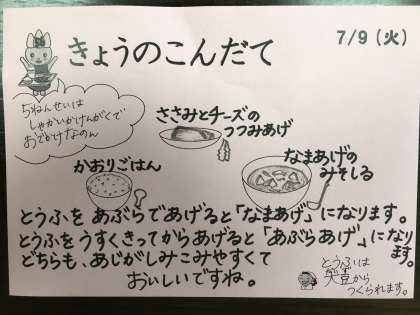 きょうのこんだて
7/9（火）
5ねんせいは
しゃかいかけんがくで
おでかけなのん
ささみとチーズの
つつみあげ
かおりごはん
なまあげの
みそしる
とうふを あぶらであげると「なまあげ」になります。
とうふをうすくきってからあげると「あぶらあげ」になります。
どちらも、あじがしみこみやすくて
おいしいですね。
とうふは
大豆から
つくられます。